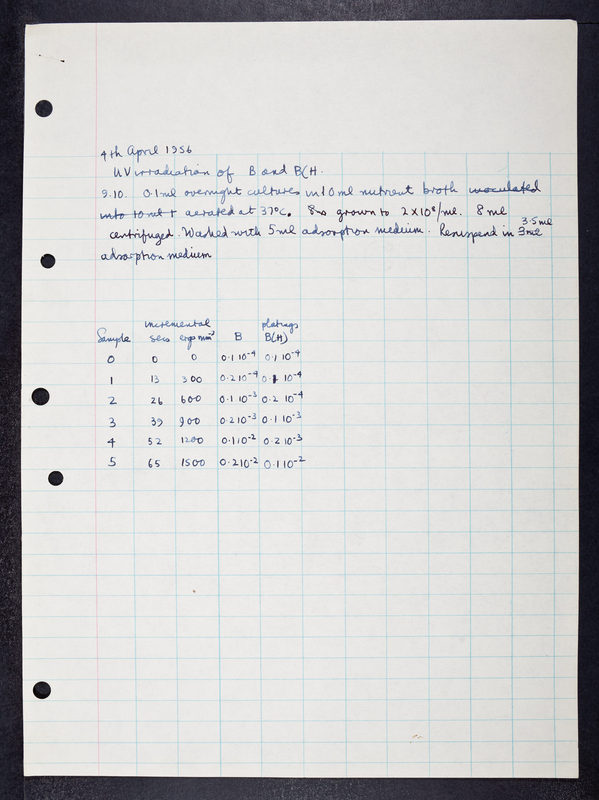 4th April 1956
UV irradiation of B and B(H.
9.10. 0.1ml overnight cultures in 10ml nutrient broth inoculated
into 10ml + aerated at 37°C. grown to 2X10⁸/ml. 8ml
centrifuged. Washed with 5ml adsorption medium. Resuspend in 3ml 3.5ml
adsorption medium
incremental platings
Sample secs ergs mm⁻² B B(H)
0 0 0 0.1 10⁻⁴ 0.1 10⁻⁴
1 13 300 0.2 10⁻⁴ 0.1 10⁻⁴
2 26 600 0.1 10⁻³ 0.2 10⁻⁴
3 39 900 0.2 10⁻³ 0.1 10⁻³
4 52 1200 0.1 10⁻² 0.2 10⁻³
5 65 1500 0.2 10⁻² 0.1 10⁻²